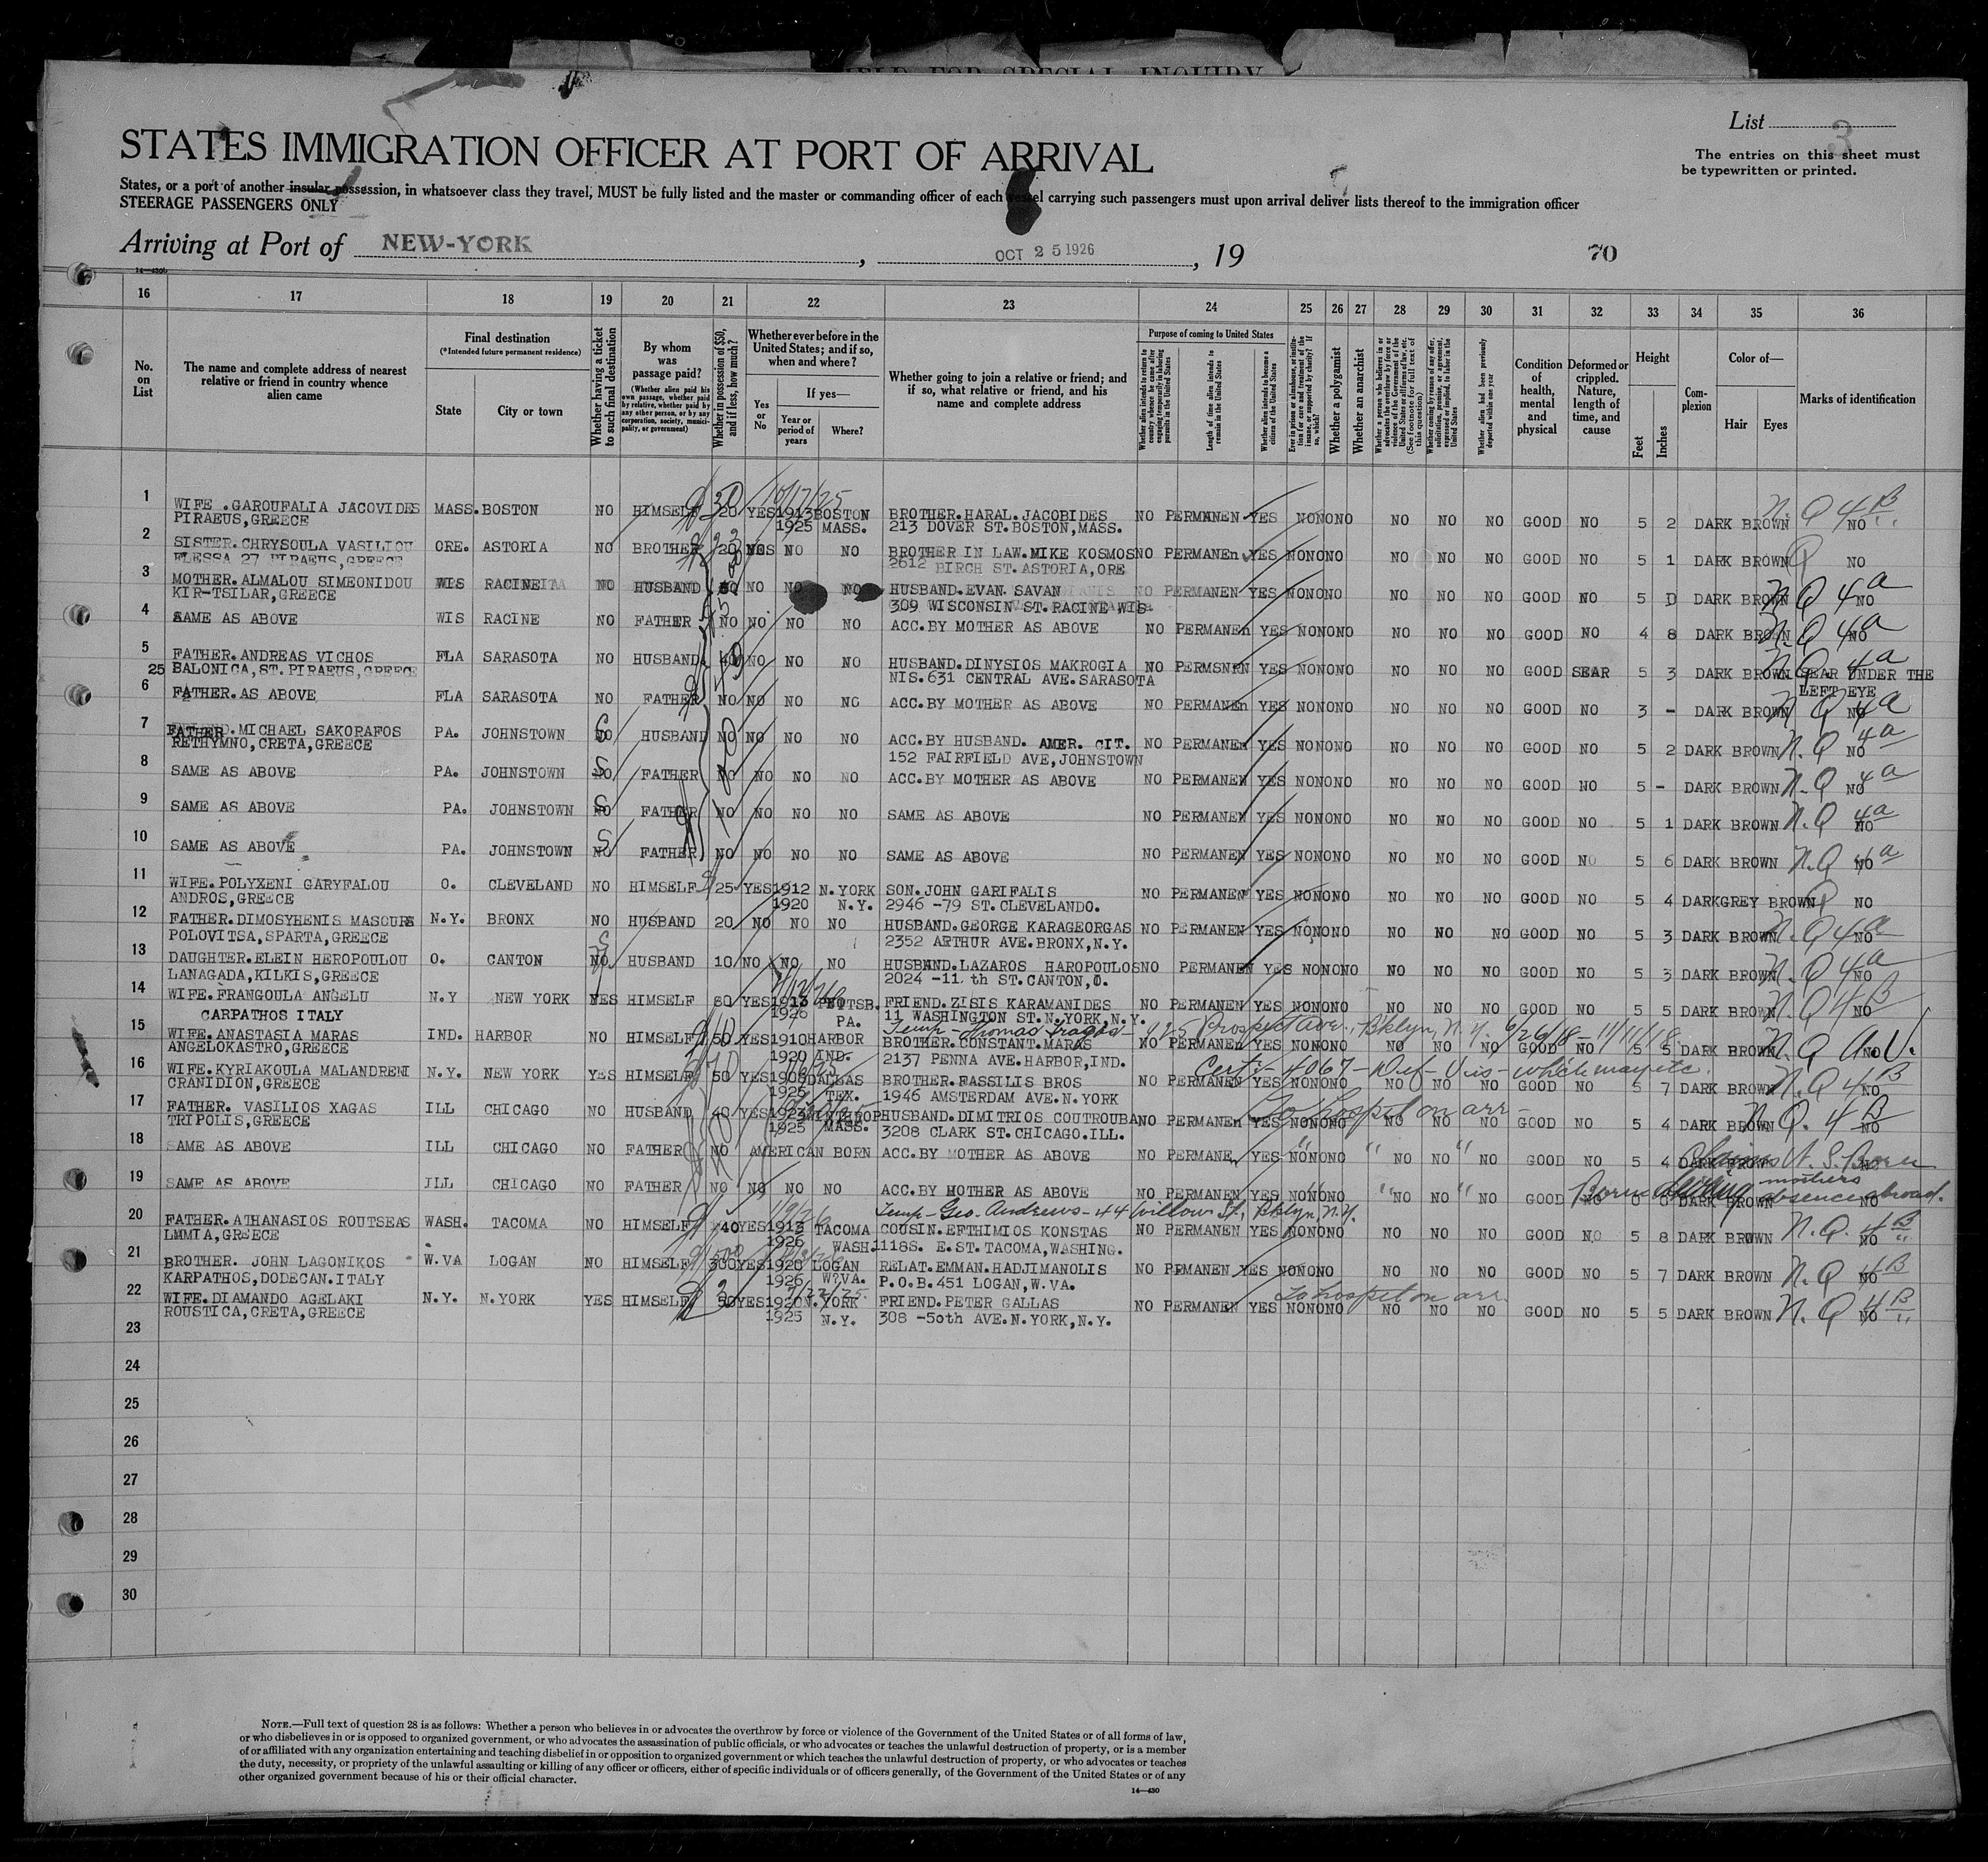 HELD FOR SPECIAL INQUIRY
List 3
STATES IMMIGRATION OFFICER AT PORT OF ARRIVAL
The entries on this sheet must
be typewritten or printed.
States, or a port of another insular possession, in whatsoever class they travel, MUST be fully listed and the master or commanding officer of each vessel carrying such passengers must upon arrival deliver lists thereof to the immigration officer
STEERAGE PASSENGERS ONLY
Arriving at Port of NEW-YORK, OCT 25 1926, 19 70
16 17 18 19 20 21 22 23 24 25 26 27 28 29 30 31 32 33 34 35 36
No. on List
The name and complete address of nearest relative or friend in country whence alien came
Final destination
(*Intended future permanent residence)
State
City or town
Whether having a ticket to such final destination
By whom was passage paid?
(Whether alien paid his own passage, whether paid by relative, whether paid by any other person, or by any corporation, society, municipality, or government)
Whether in possession of $50, and if less, how much?
Whether ever before in the United States; and if so, when and where?
Yes or No
If yes—
Year or period of years
Where?
Whether going to join a relative or friend; and if so, what relative or friend, and his name and complete address
Purpose of coming to United States
Whether alien intends to return to country whence he came after engaging temporarily in laboring pursuits in the United States
Length of time alien intends to remain in the United States
Whether alien intends to become a citizen of the United States
Whether a polygamist
Whether an anarchist
Whether alien had been previously deported within one year
Condition of health, mental and physical
Deformed or crippled. Nature, length of time, and cause
Height
Feet
Inches
Complexion
Color of—
Hair
Eyes
Marks of identification
1 WIFE .GAROUFALIA JACOVIDES MASS. BOSTON NO HIMSELF 20 YES 1913 BOSTON BROTHER.HARAL.JACOBIDES NO PERMANEN YES NONONO NO NO NO GOOD NO 5 2 DARK BROWN N.Q 4B NO
PIRAEUS,GREECE 1925 MASS. 213 DOVER ST.BOSTON,MASS.
10/17/25
2 SISTER.CHRYSOULA VASILIOU ORE. ASTORIA NO BROTHER 20 NO NO BROTHER IN LAW.MIKE KOSMOS NO PERMANEn YES NONONO NO NO NO GOOD NO 5 1 DARK BROWN Q NO
FLESSA 27 PIRAEUS,GREECE 2612 BIRCH ST.ASTORIA,ORE
3 MOTHER.ALMALOU SIMEONIDOU WIS RACINE NO HUSBAND NO NO NO HUSBAND.EVAN.SAVAN NO PERMANEN YES NONONO NO NO NO GOOD NO 5 D DARK BROWN N.Q 4a NO
KIR-TSILAR,GREECE 309 WISCONSIN ST.RACINE WIS
4 SAME AS ABOVE WIS RACINE NO FATHER NO NO NO NO ACC.BY MOTHER AS ABOVE NO PERMANEn YES NONONO NO NO NO GOOD NO 4 8 DARK BROWN N.Q 4a NO
5 FATHER.ANDREAS VICHOS FLA SARASOTA NO HUSBAND 40 NO NO NO HUSBAND.DINYSIOS MAKROGIA NO PERMSNEN YES NONONO NO NO NO GOOD SEAR 5 3 DARK BROWN N.Q 4a SEAR UNDER THE
25 BALONICA,ST.PIRAEUS,GREECE NIS.631 CENTRAL AVE.SARASOTA LEFT EYE
6 FATHER.AS ABOVE FLA SARASOTA NO FATHER NO NO NO NO ACC.BY MOTHER AS ABOVE NO PERMANEn YES NONONO NO NO NO GOOD NO 3 - DARK BROWN N Q 4a NO
7 FATHER.MICHAEL SAKORAFOS PA. JOHNSTOWN S NO HUSBAND NO NO NO NO ACC.BY HUSBAND. AMER. CIT. NO PERMANEn YES NONONO NO NO NO GOOD NO 5 2 DARK BROWN N.Q 4a NO
RETHYMNO,CRETA,GREECE 152 FAIRFIELD AVE,JOHNSTOWN
8 SAME AS ABOVE PA. JOHNSTOWN S NO FATHER NO NO NO NO ACC.BY MOTHER AS ABOVE NO PERMANEN YES NONONO NO NO NO GOOD NO 5 - DARK BROWN N.Q 4a NO
9 SAME AS ABOVE PA. JOHNSTOWN S NO FATHER NO NO NO NO SAME AS ABOVE NO PERMANEN YES NONONO NO NO NO GOOD NO 5 1 DARK BROWN N.Q 4a NO
10 SAME AS ABOVE PA. JOHNSTOWN S NO FATHER NO NO NO NO SAME AS ABOVE NO PERMANEN YES NONONO NO NO NO GOOD NO 5 6 DARK BROWN N.Q 4a NO
11 WIFE.POLYXENI GARYFALOU O. CLEVELAND NO HIMSELF 25 YES 1912 N.YORK SON.JOHN GARIFALIS NO PERMANEN YES NONONO NO NO NO GOOD NO 5 4 DARKGREY BROWN Q NO
ANDROS,GREECE 1920 N.Y. 2946 -79 ST.CLEVELANDO.
12 FATHER.DIMOSYHENIS MASOURS N.Y. BRONX NO HUSBAND 20 NO NO NO HUSBAND.GEORGE KARAGEORGAS NO PERMANEN YES NONONO NO NO NO GOOD NO 5 3 DARK BROWN N.Q 4a NO
POLOVITSA,SPARTA,GREECE 2352 ARTHUR AVE.BRONX,N.Y.
13 DAUGHTER.ELEIN HEROPOULOU O. CANTON S NO HUSBAND 10 NO NO NO HUSBAND.LAZAROS HAROPOULOS NO PERMANEN YES NONONO NO NO NO GOOD NO 5 3 DARK BROWN N.Q 4a NO
LANAGADA,KILKIS,GREECE 2024 -11 th ST.CANTON,O.
14 WIFE.FRANGOULA ANGELU N.Y NEW YORK YES HIMSELF 80 YES 1913 PITTSB. FRIEND.ZISIS KARAMANIDES NO PERMANEN YES NONONO NO NO NO GOOD NO 5 5 DARK BROWN N.Q 4B NO
CARPATHOS ITALY 1926 PA. 11 WASHINGTON ST.N.YORK,N.Y.
Temp - Thomas Fragos - 425 Prospect Ave., Bklyn, N.Y. 6/26/18 - 11/11/18.
15 WIFE.ANASTASIA MARAS IND. HARBOR NO HIMSELF 50 YES 1910 HARBOR BROTHER.CONSTANT.MARAS NO PERMANEn YES NONONO NO NO NO GOOD NO 5 5 DARK BROWN N.Q A.V. NO
ANGELOKASTRO,GREECE 1920 IND. 2137 PENNA AVE.HARBOR,IND.
Certi - 4067 - Def - Vis - which may etc.
16 WIFE.KYRIAKOULA MALANDRENI N.Y. NEW YORK YES HIMSELF 50 YES 1906 DALLAS BROTHER.FASSILIS BROS NO PERMANEN YES NONONO NO NO NO GOOD NO 5 7 DARK BROWN N.Q 4B NO
CRANIDION,GREECE 1925 TEX. 1946 AMSTERDAM AVE.N.YORK
To hospit on arr -
17 FATHER. VASILIOS XAGAS ILL CHICAGO NO HUSBAND 40 YES 1923 WINTHROP HUSBAND.DIMITRIOS COUTROUBA NO PERMANEn YES NONONO NO NO NO GOOD NO 5 4 DARK BROWN N.Q. 4B NO
TRIPOLIS,GREECE 1925 MASS. 3208 CLARK ST.CHICAGO.ILL.
18 SAME AS ABOVE ILL CHICAGO NO FATHER NO AMERICAN BORN ACC.BY MOTHER AS ABOVE NO PERMANEn YES NONONO NO NO NO GOOD NO 5 4 DARK BROWN Claims U.S. Born NO
19 SAME AS ABOVE ILL CHICAGO NO FATHER NO NO NO NO ACC.BY MOTHER AS ABOVE NO PERMANEN YES NONONO NO NO NO GOOD NO 0 8 DARK BROWN Born during mothers absence abroad. NO
Temp - Geo. Andrews - 44 Willow St., Bklyn, N.Y.
20 FATHER.ATHANASIOS ROUTSEAS WASH. TACOMA NO HIMSELF 40 YES 1913 TACOMA COUSIN.EFTHIMIOS KONSTAS NO PERMANEN YES NONONO NO NO NO GOOD NO 5 8 DARK BROWN N.Q. 4B NO
LMMIA,GREECE 1926 WASH. 1118S. E.ST.TACOMA,WASHING.
21 BROTHER. JOHN LAGONIKOS W.VA LOGAN NO HIMSELF 300 YES 1920 LOGAN RELAT.EMMAN.HADJIMANOLIS NO PRMANEN YES NONONO NO NO NO GOOD NO 5 7 DARK BROWN N.Q 4B NO
KARPATHOS,DODECAN.ITALY 1926 W?VA. P.O.B.451 LOGAN,W.VA.
To hospit on arr.
22 WIFE.DIAMANDO AGELAKI N.Y. N.YORK YES HIMSELF 50 YES 1920 N.YORK FRIEND.PETER GALLAS NO PERMANEN YES NONONO NO NO NO GOOD NO 5 5 DARK BROWN N.Q 4B NO
ROUSTICA,CRETA,GREECE 1925 N.Y. 308 -5oth AVE.N.YORK,N.Y.
23
24
25
26
27
28
29
30
NOTE.—Full text of question 28 is as follows: Whether a person who believes in or advocates the overthrow by force or violence of the Government of the United States or of all forms of law,
or who disbelieves in or is opposed to organized government, or who advocates the assassination of public officials, or who advocates or teaches the unlawful destruction of property, or is a member
of or affiliated with any organization entertaining and teaching disbelief in or opposition to organized government or which teaches the unlawful destruction of property, or who advocates or teaches
the duty, necessity, or propriety of the unlawful assaulting or killing of any officer or officers, either of specific individuals or of officers generally, of the Government of the United States or of any
other organized government because of his or their official character.
14—430